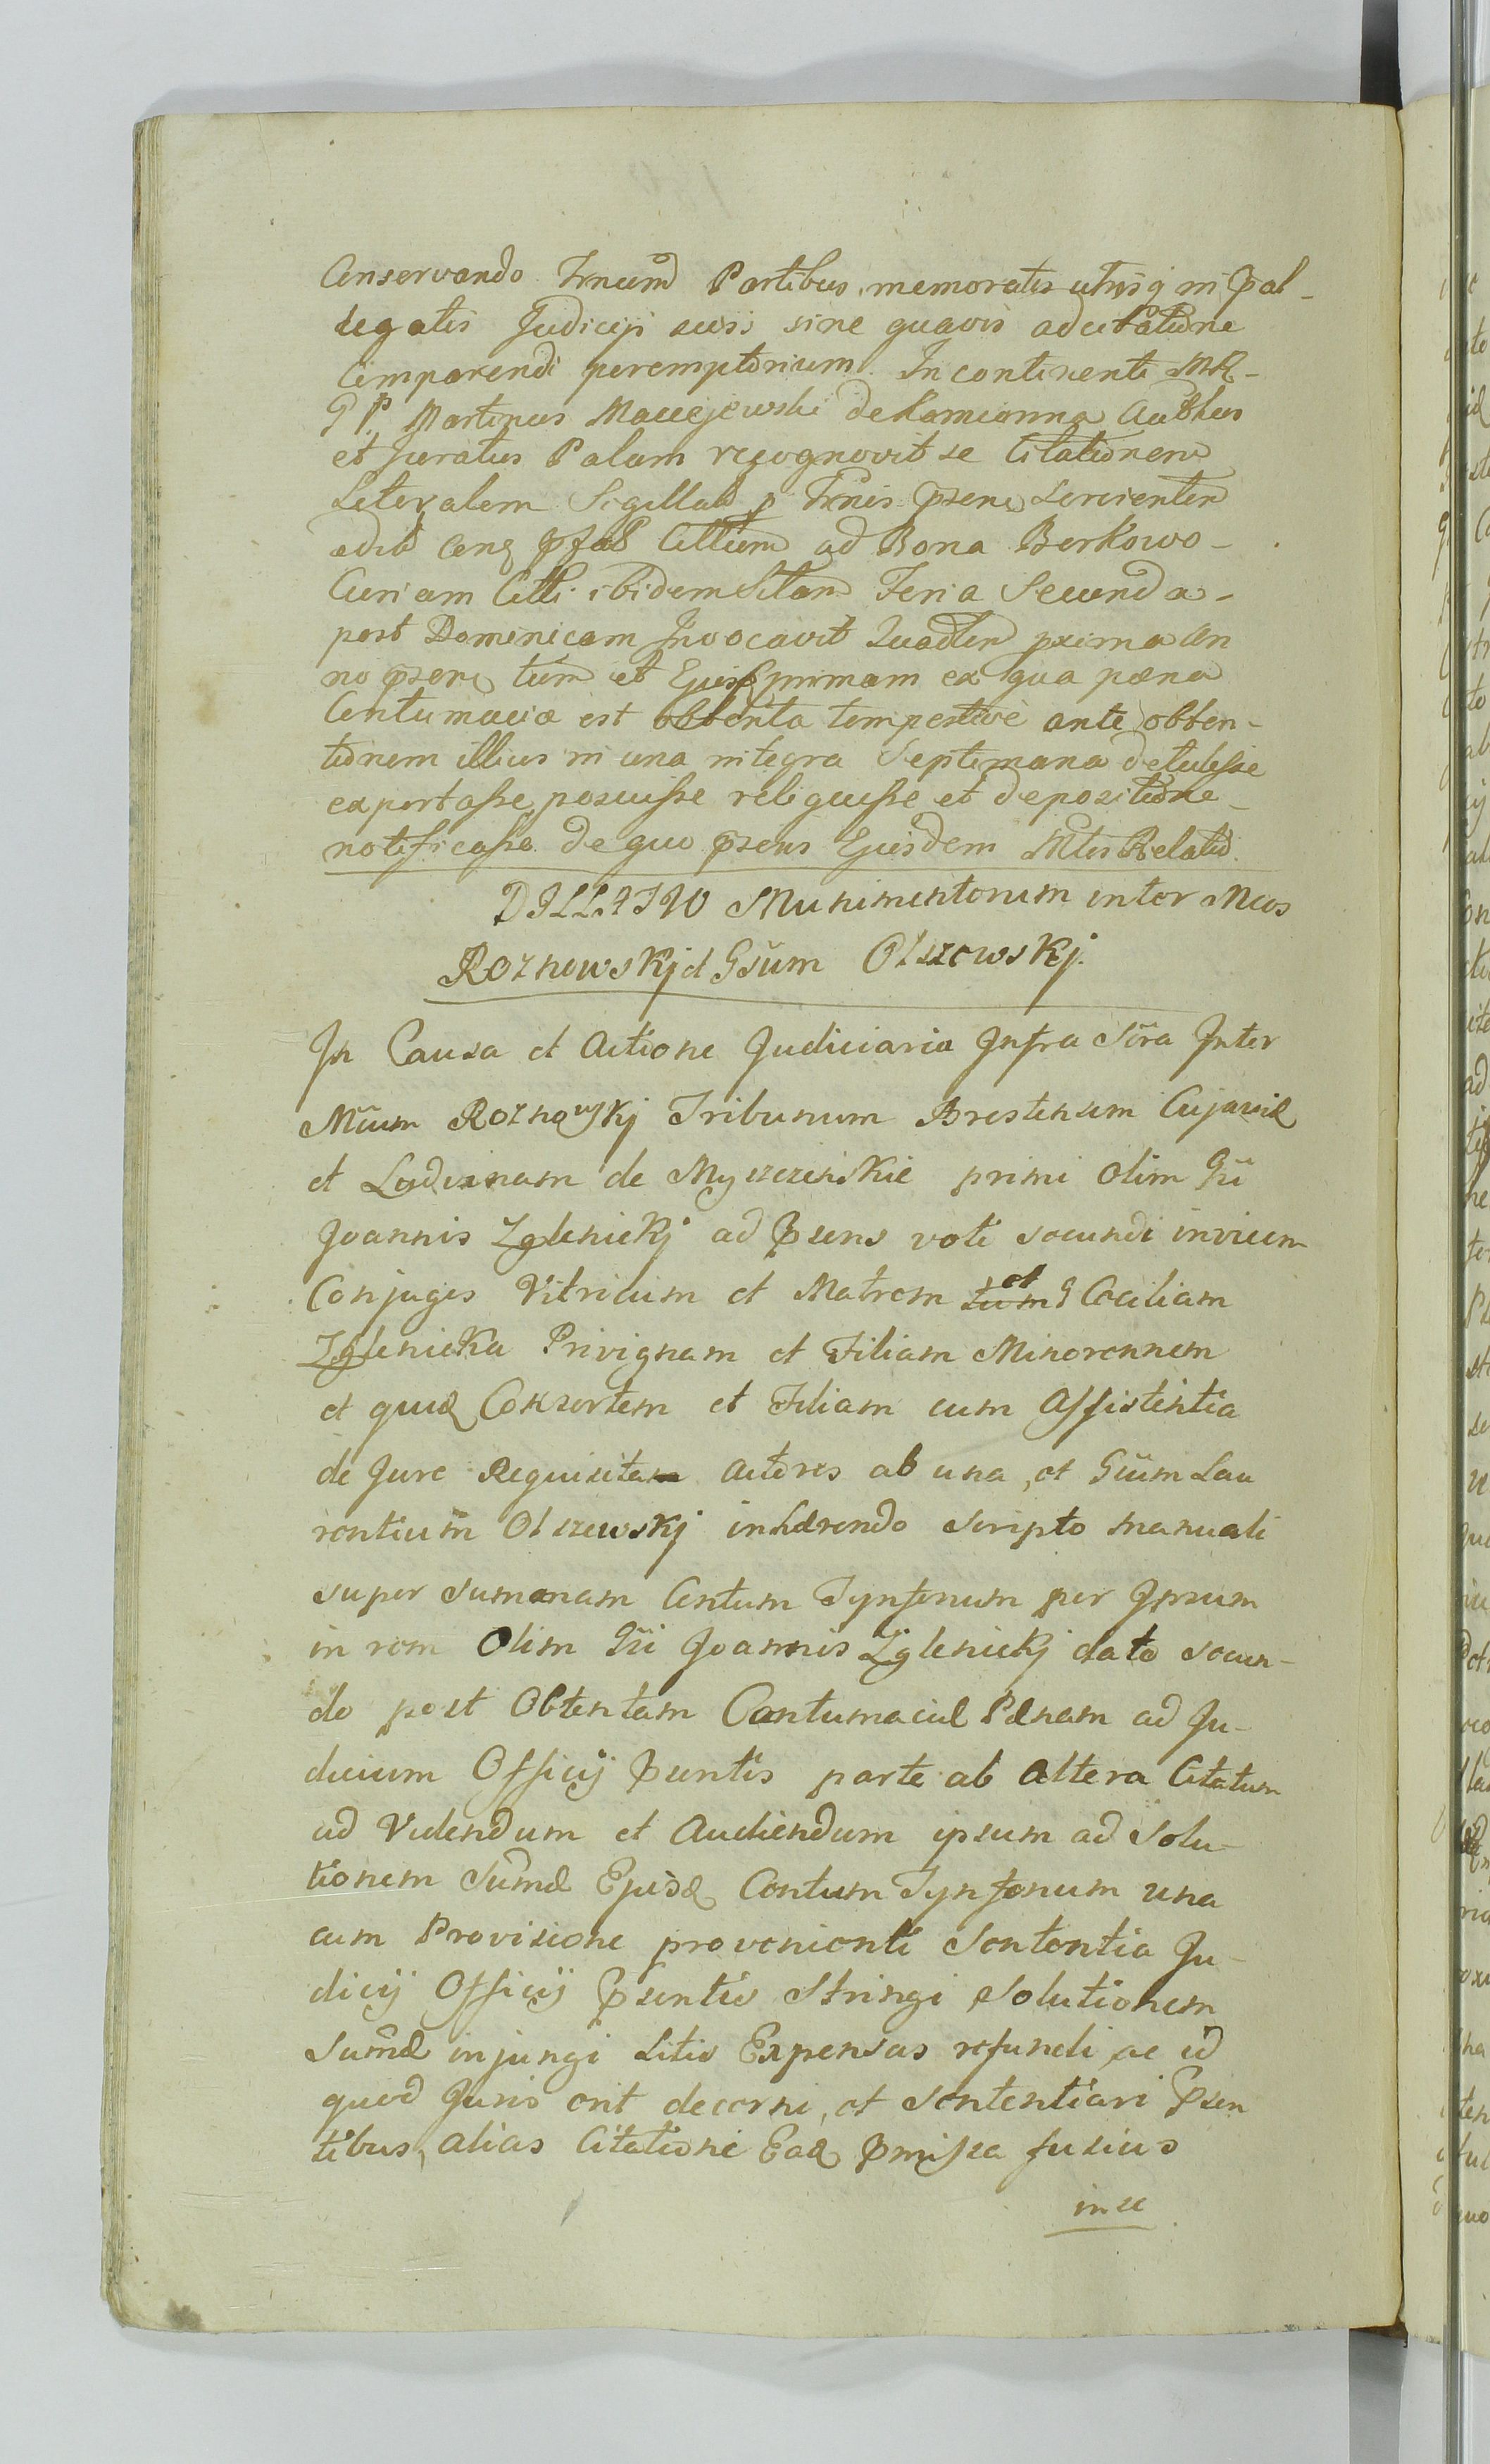 Conservando Trnum Partibus memoratis utrisq in Pal-
legatis Judicij sui sine quavis adcitatione
Comparendi peremptorium. In continenti MR-
G P. Martinus Maciejewski de Kamionna Authus
et juratus Palam recognovit se Citationem
Literalem Sigillat p Trnis Psens servienten
ad Bona Berkowo-
Curiam Citti ibidem Sitam Feria Secunda-
post Dominicam Invocavit Quadlen proxima An
no psens tum et Ejusq primam ex qua pœna
Contumaciæ est obtenta tempestive ante obten-
tionem illius in una integra Septimana detulisse
exportasse posuisse reliquisse et depositione-
notificasse de quo psens Ejusdem Mtis Relatio.
DILLATIO Munimentorum inter Mcos
Roznowskj et Gsum Olszowskj.
In Causa et Actione Judiciaria Infra Scra Inter
Mcum Roznowskj Tribunum Brestensem Cujaviæ
et Ludvinam de Myszczenskie primi olim Gsi
Joannis Zglenickj ad Psens voti secundi invicem
Conjuges Vitricum et Matrem tum et G Cæciliam
Zglenicka Privignam et Filiam Minorennem
et quæ Consortem et Filiam cum Assistentia
de Jure Requisita Actores ab una, et Gsum Lau
rentium Olszewskj inhærendo scripto manuali
super summam Centum Tynfonum per Ipsum
in rem Olim Gsi Joannis Zglenickj dato secun-
do post Obtentam Contumaciæ Pænam ad Ju-
dicium Officij Psentis parte ab altera Citatum
ad Videndum et Audiendum ipsum ad solu-
tionem Sumæ Ejusd Centum Tynfonum una
cum Provisione provenienti Sententia Ju-
dicij Officij Psentis Stringi Solutionem
Sumæ injungi Litis Expensas refundi ac id
quod Juris erit decerni, et Sententiari Psen
tibus, alias Citatione Eaq Pmissa fusius
in se